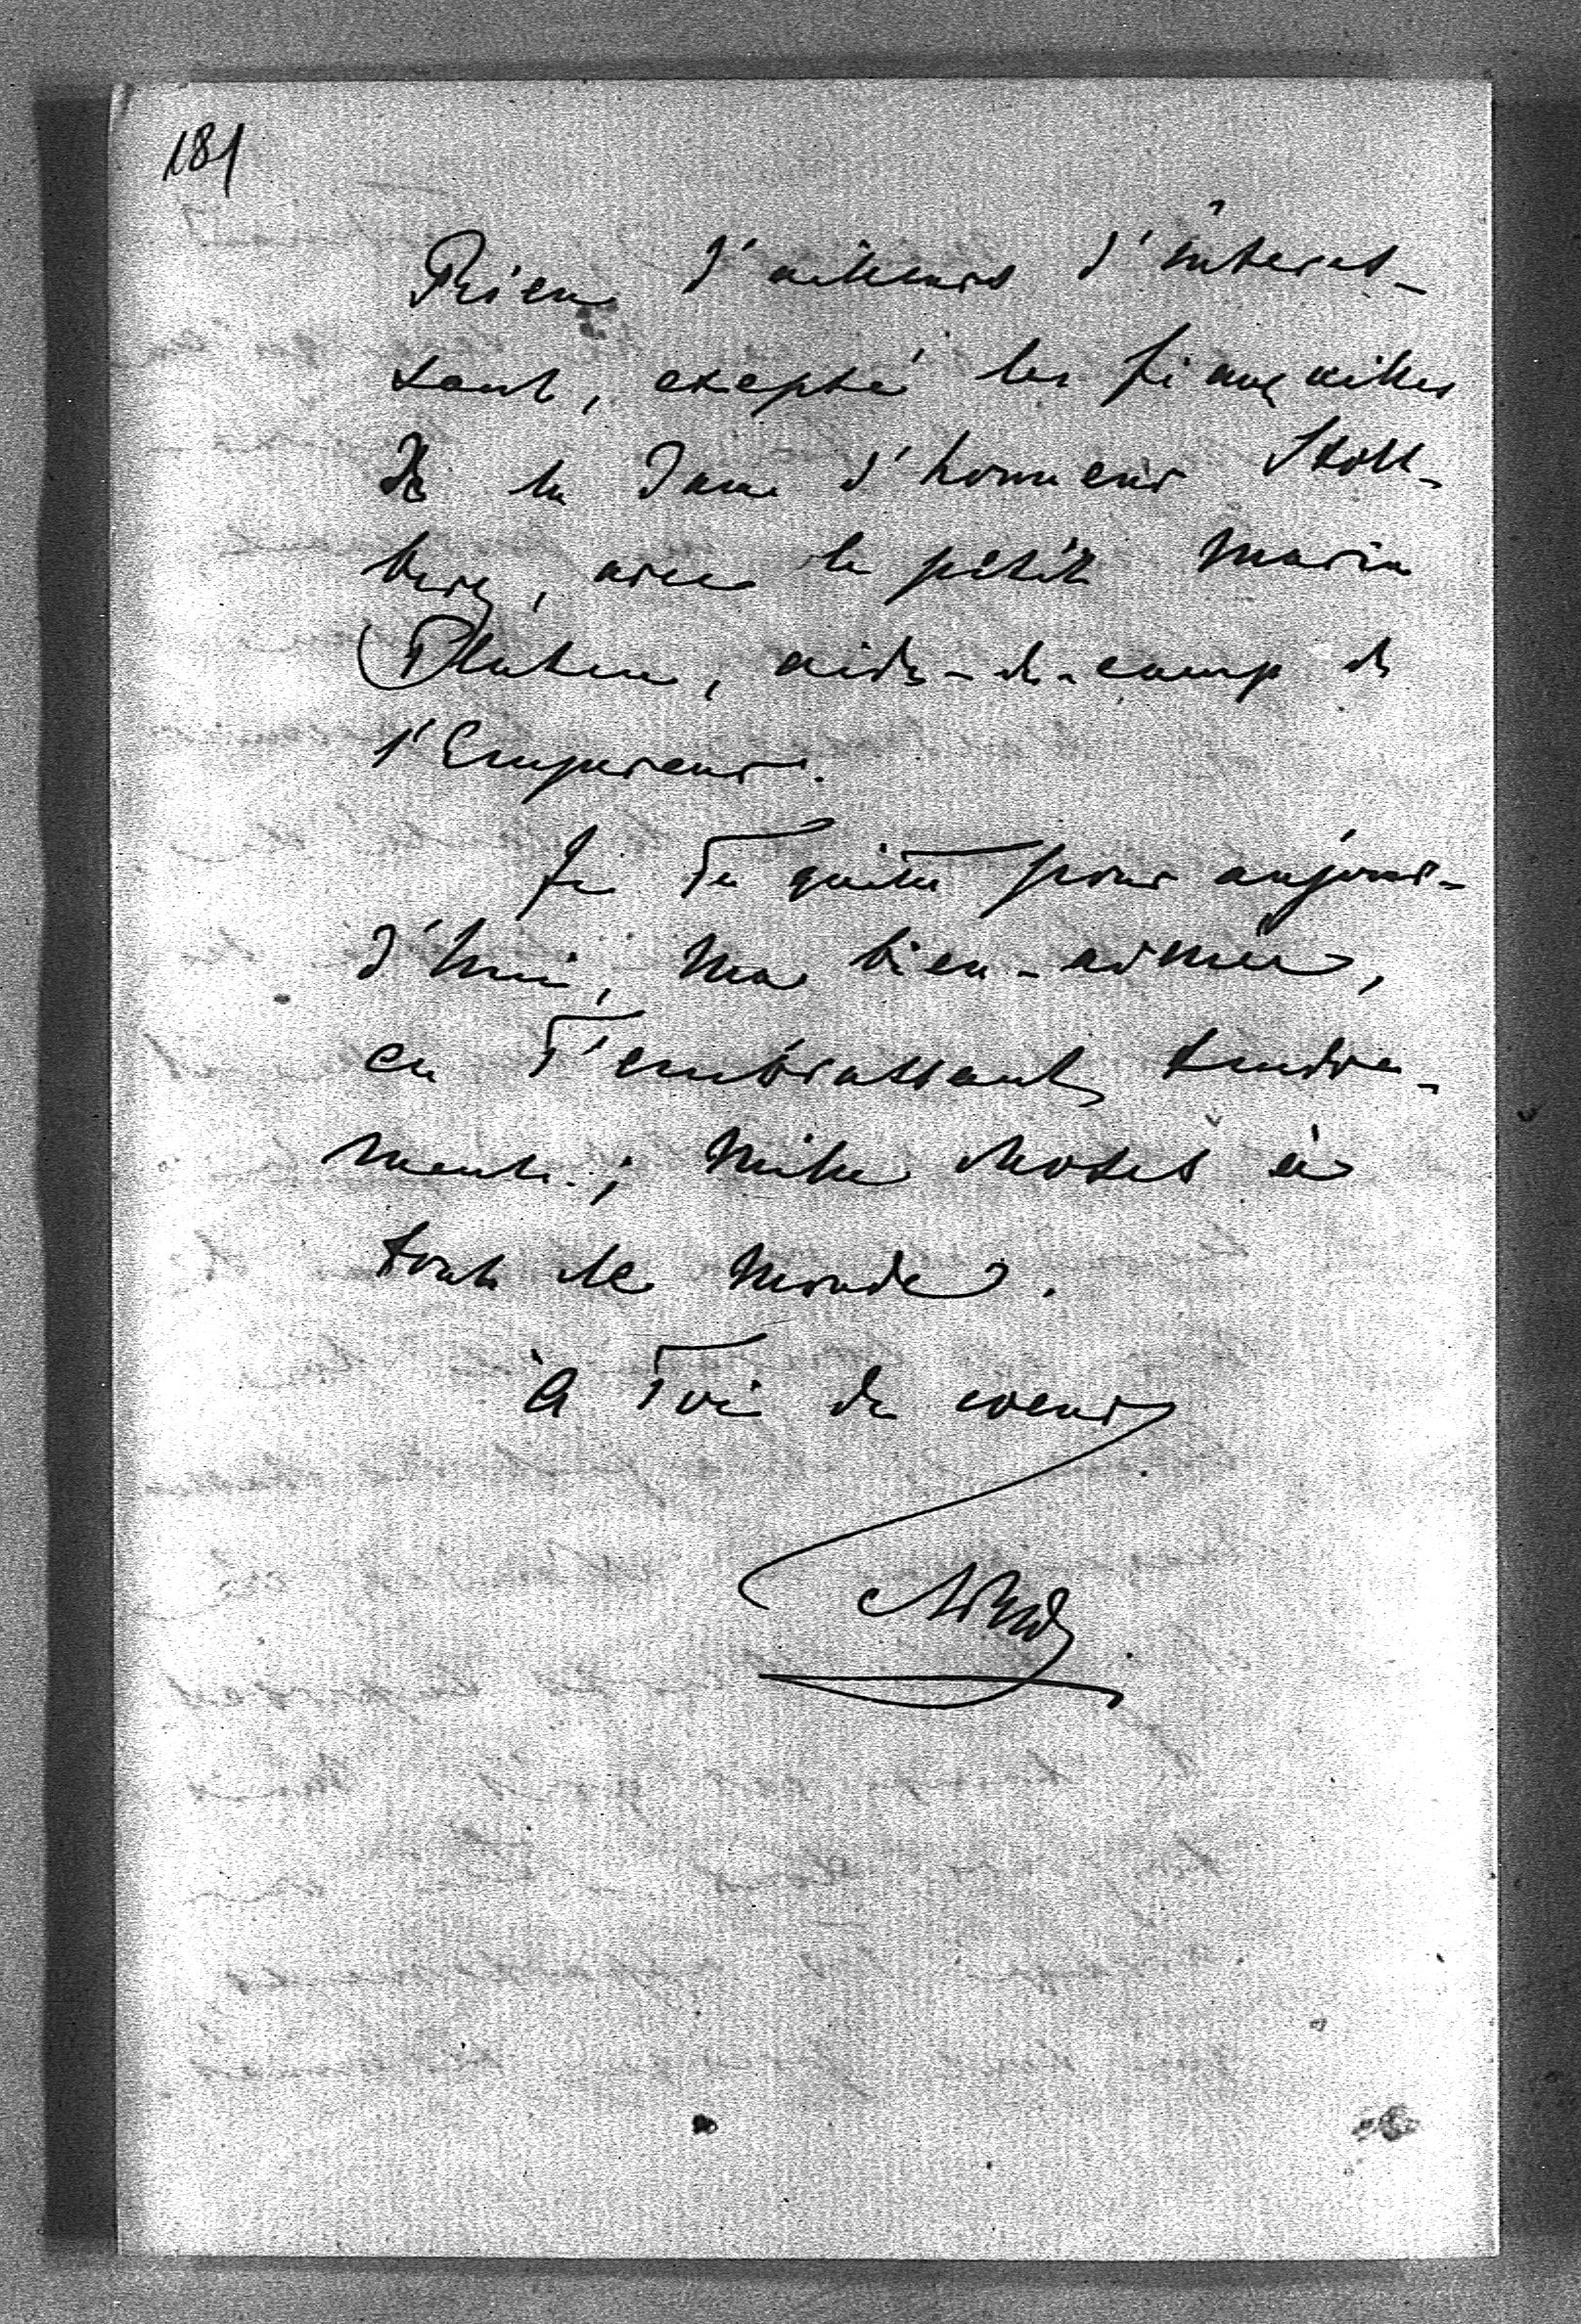 181
Rien d'ailleurs d'intéres-
sant, exepté les fiançailles
de la dame d'honneur Stoll-
berg, avec le petit marin
Platen, aide-de-camp de
l'Empereur.
Je Te quitte pour aujour-
d'hui, ma bien-aimée,
en T'embrassant tendre-
ment; mille choses à
tout le monde.
à Toi de coeur